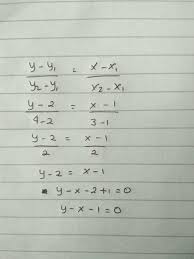 y-y₁ / y₂-y₁ = x-x₁ / x₂-x₁
y-2 / 4-2 = x-1 / 3-1
y-2 / 2 = x-1 / 2
y-2 = x-1
y-x-2+1=0
y-x-1=0